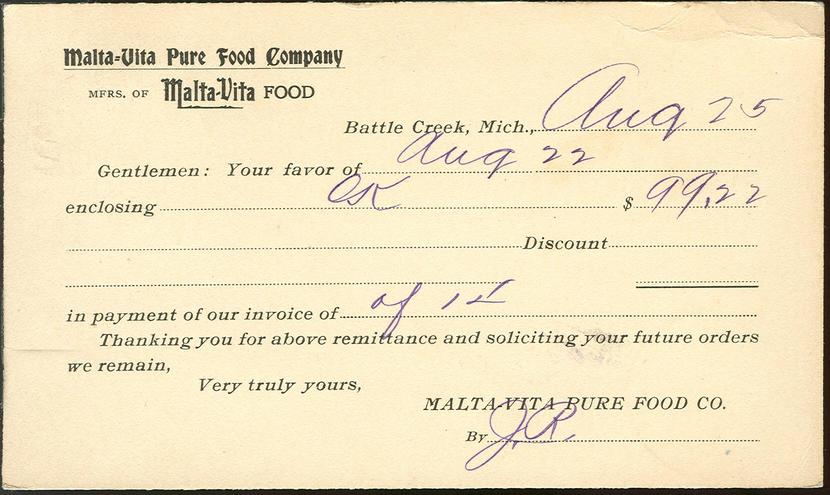 Malta-Vita Pure Food Company
MFRS. OF Malta-Vita FOOD
Battle Creek, Mich., Aug 25
Gentlemen: Your favor of Aug 22
enclosing ck $ 99.22
Discount
in payment of our invoice of
Thanking you for above remittance and soliciting your future orders
we remain,
Very truly yours,
MALTA-VITA PURE FOOD CO.
By J.R.